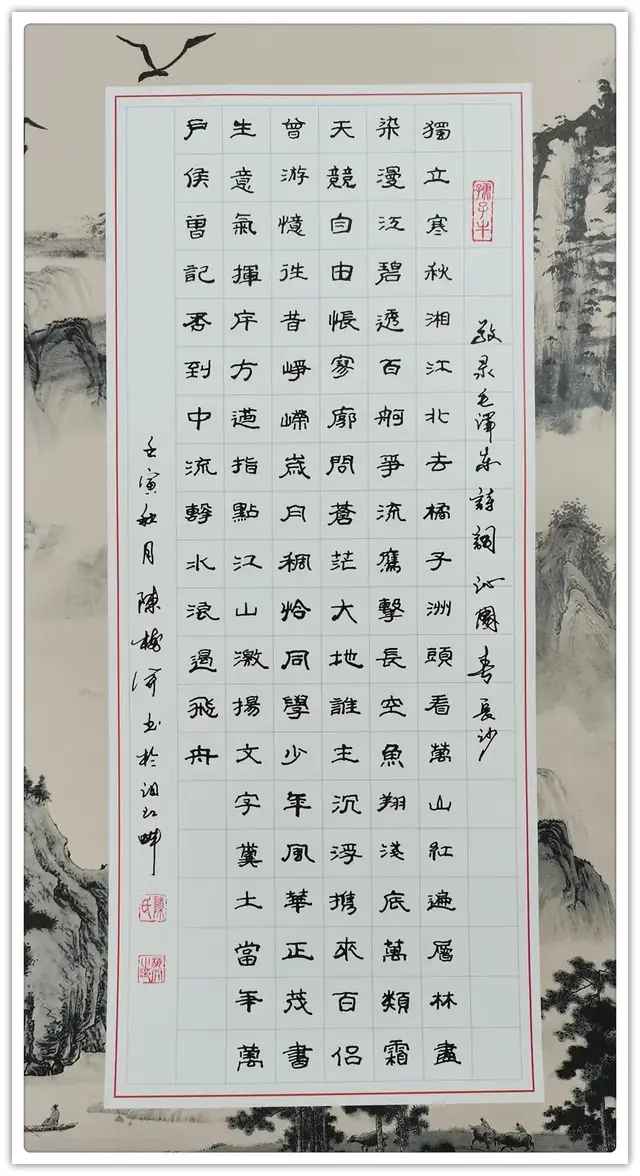 孺子牛
敬录毛澤东詩詞沁園春長沙
獨立寒秋湘江北去橘子洲頭看萬山紅遍層林盡
染漫江碧透百舸爭流鷹擊長空魚翔淺底萬類霜
天競自由悵寥廓問蒼茫大地誰主沉浮携來百侣
曾游憶往昔崢嶸歲月稠恰同學少年風華正茂書
生意氣揮斥方遒指點江山激揚文字糞土當年萬
户侯曾記否到中流擊水浪遏飛舟
壬寅秋月陳梅书於江畔
陳氏